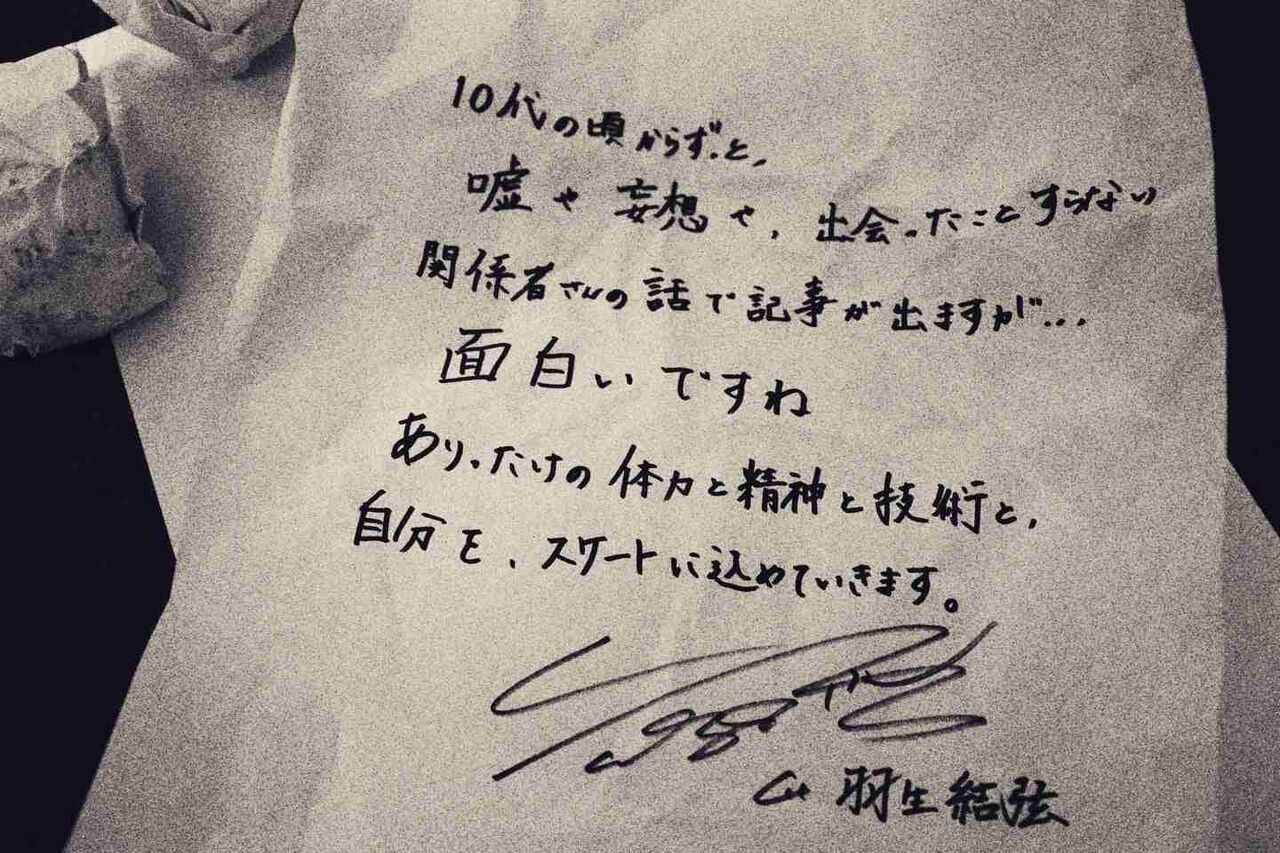 10代の頃からずっと、
嘘や妄想や、出会ったことすらない
関係者さんの話で記事が出ますが...
面白いですね
ありったけの体力と精神と技術と、
自分を、スケートに込めていきます。
羽生結弦